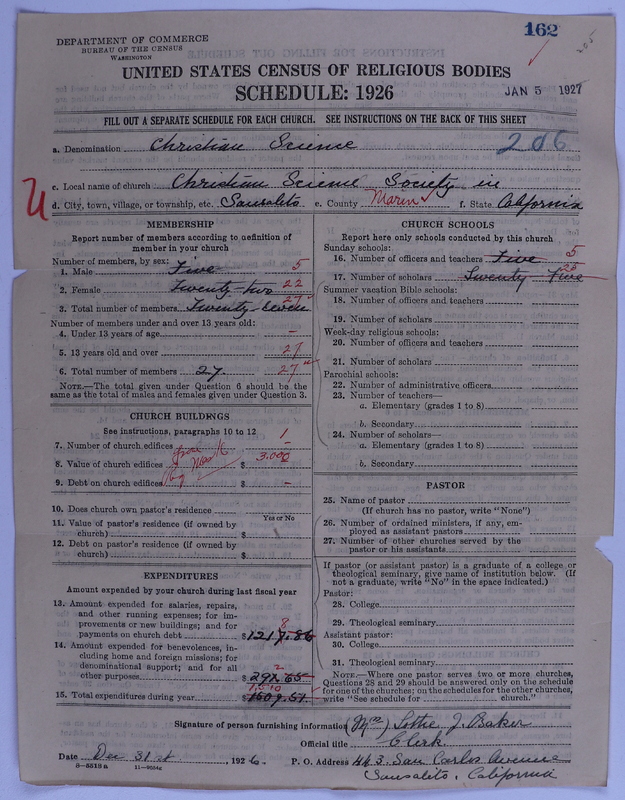 162
205
DEPARTMENT OF COMMERCE
BUREAU OF THE CENSUS
WASHINGTON
UNITED STATES CENSUS OF RELIGIOUS BODIES
SCHEDULE: 1926
JAN 5 1927
FILL OUT A SEPARATE SCHEDULE FOR EACH CHURCH. SEE INSTRUCTIONS ON THE BACK OF THIS SHEET
a. Denomination Christian Science 206
c. Local name of church Christian Science Society in
U
d. City, town, village, or township, etc. Sausalito e. County Marin f. State California
MEMBERSHIP
Report number of members according to definition of
member in your church
Number of members, by sex:
1. Male Five 5
2. Female Twenty-two 22
3. Total number of members Twenty-seven 27
Number of members under and over 13 years old:
4. Under 13 years of age –
5. 13 years old and over 27
6. Total number of members 27. 27
NOTE.—The total given under Question 6 should be the
same as the total of males and females given under Question 3.
CHURCH BUILDINGS
See instructions, paragraphs 10 to 12
7. Number of church edifices 1
8. Value of church edifices $ 3.000
9. Debt on church edifices $ –
10. Does church own pastor's residence
Yes or No
11. Value of pastor's residence (if owned by
church) $
12. Debt on pastor's residence (if owned by
church) $
EXPENDITURES
Amount expended by your church during last fiscal year
13. Amount expended for salaries, repairs,
and other running expenses; for im-
provements or new buildings; and for
payments on church debt $ 1217.86 8
14. Amount expended for benevolences, in-
cluding home and foreign missions; for
denominational support; and for all
other purposes $ 291.65 2
15. Total expenditures during year $ 1509.51 1,510
CHURCH SCHOOLS
Report here only schools conducted by this church
Sunday schools:
16. Number of officers and teachers Five 5
17. Number of scholars Twenty Five 25
Summer vacation Bible schools:
18. Number of officers and teachers
19. Number of scholars
Week-day religious schools:
20. Number of officers and teachers
21. Number of scholars
Parochial schools:
22. Number of administrative officers
23. Number of teachers—
a. Elementary (grades 1 to 8)
b. Secondary
24. Number of scholars—
a. Elementary (grades 1 to 8)
b. Secondary
PASTOR
25. Name of pastor
(If church has no pastor, write "None")
26. Number of ordained ministers, if any, em-
ployed as assistant pastors
27. Number of other churches served by the
pastor or his assistants
If pastor (or assistant pastor) is a graduate of a college or
theological seminary, give name of institution below. (If
not a graduate, write "No" in the space indicated.)
Pastor:
28. College
29. Theological seminary
Assistant pastor:
30. College
31. Theological seminary
NOTE.—Where one pastor serves two or more churches,
Questions 28 and 29 should be answered only on the schedule
for one of the churches; on the schedules for the other churches,
write "See schedule for church."
Signature of person furnishing information (Mrs) Lottie J. Baker
Official title Clerk
Date Dec 31st, 1926. P. O. Address 443. San Carlos Avenue
8—5518a 11—9054c
Sausalito, California